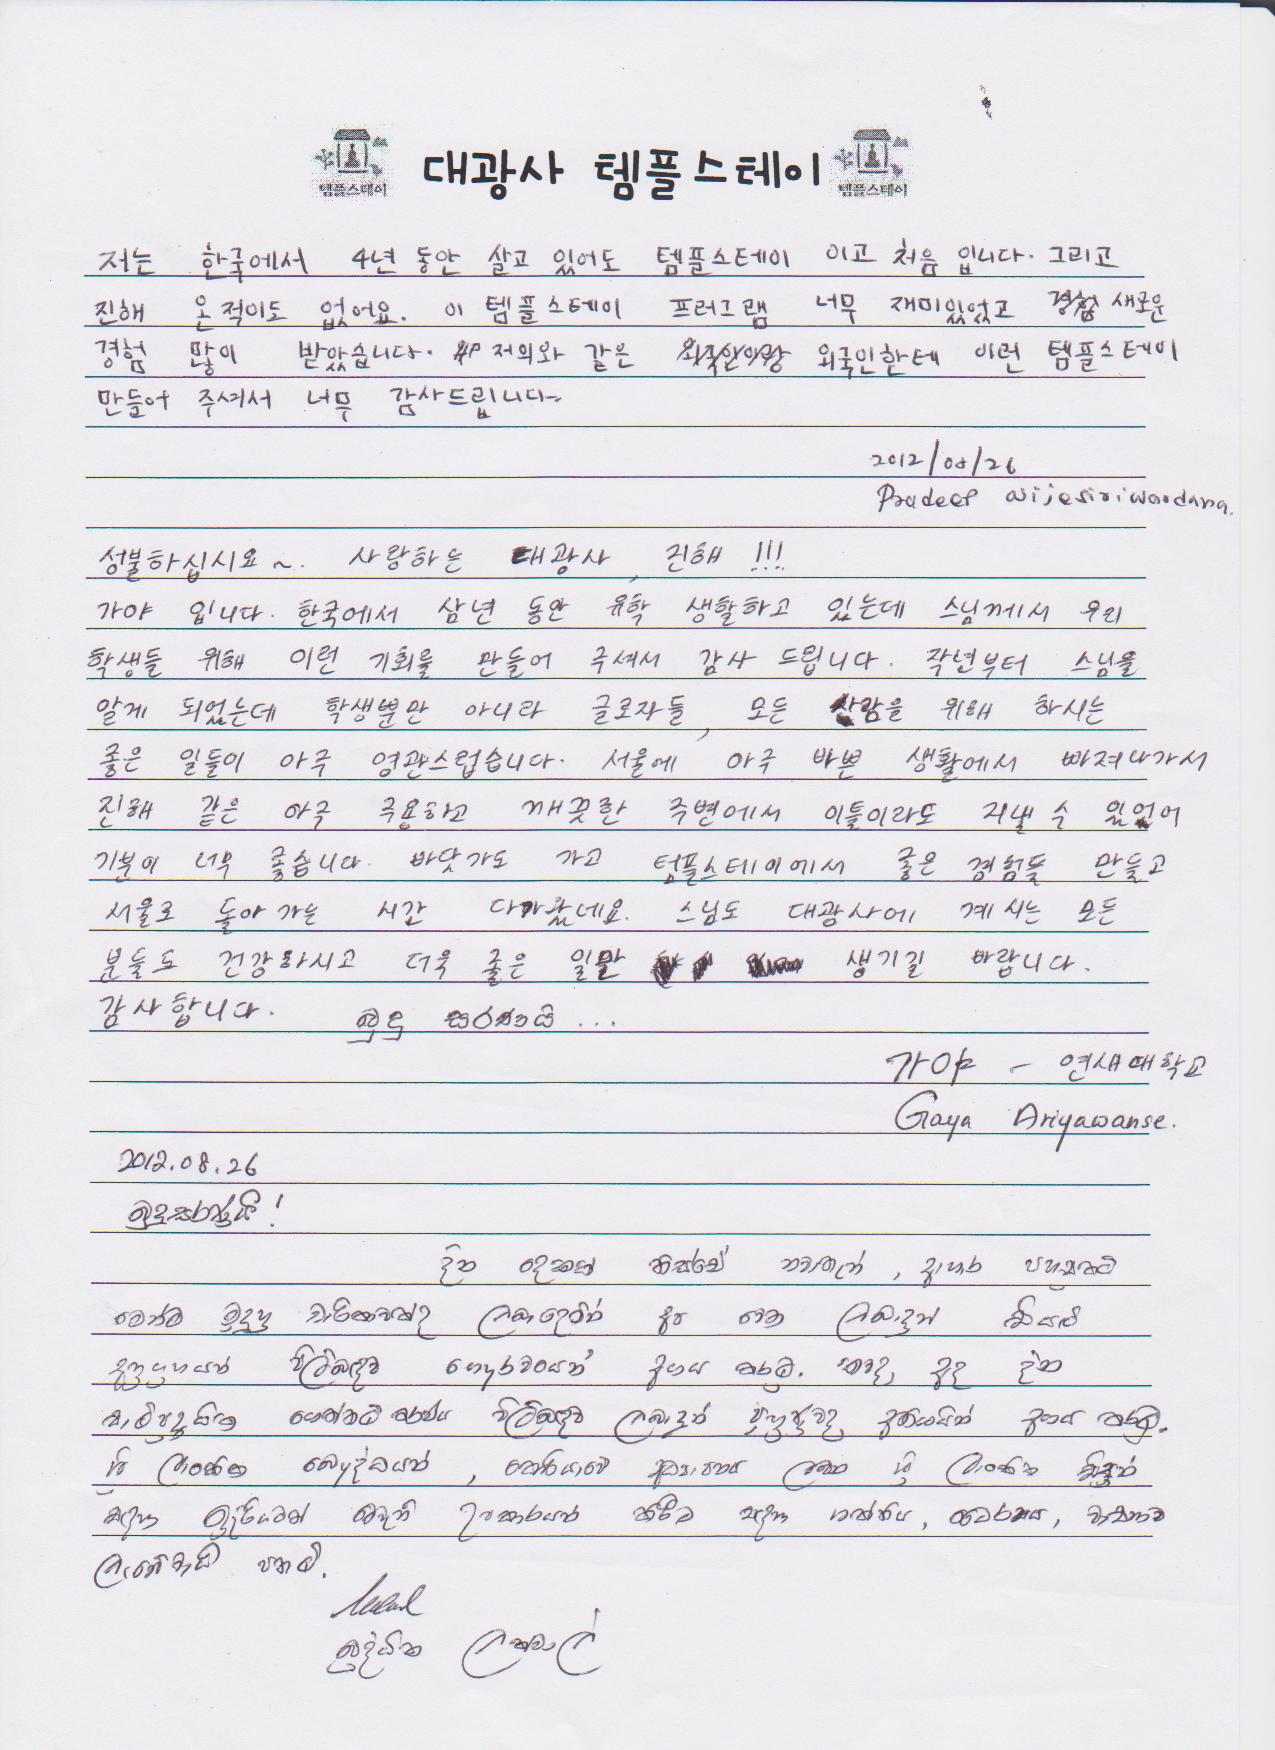 템플스테이 대광사 템플스테이 템플스테이
저는 한국에서 4년 동안 살고 있어도 템플스테이 이고 처음 입니다. 그리고
진해 온적이도 없어요. 이 템플스테이 프러그램 너무 재미있었고 경험 새로운
경험 많이 받았습니다. 저의와 같은 외국인한테 이런 템플스테이
만들어 주셔서 너무 감사드립니다~
2012/08/26
Pradeep Wijesiriwardana.
성불하십시요~. 사랑하는 대광사, 진해 !!!
가야 입니다. 한국에서 삼년 동안 유학 생활하고 있는데 스님께서 우리
학생들 위해 이런 기회를 만들어 주셔서 감사 드립니다. 작년부터 스님을
알게 되었는데 학생뿐만 아니라 글로자들, 모든 사람을 위해 하시는
좋은 일들이 아주 영관스럽습니다. 서울에 아주 바쁜 생활에서 빠져나가서
진해 같은 아주 조용하고 깨끗한 주변에서 이틀이라도 지낼 수 있었어
기분이 너무 좋습니다. 바닷가도 가고 템플스테이에서 좋은 경험들 만들고
서울로 돌아 가는 시간 다가왔네요. 스님도 대광사에 계시는 모든
분들도 건강하시고 더욱 좋은 일만 생기길 바랍니다.
감사합니다. බුදු සරණයි ...
가야 - 연세대학교
Gaya Ariyawanse.
2012.08.26
බුදුසරණයි!
දින දෙකක් තිස්සේ නවාතැන්, ආහාර පහසුකම්
මෙන්ම අප වෙත ලබාදුන් සියලු
පිළිබඳව ගෞරවයෙන් අගය කරමු.
පිළිබඳව ලබාදුන් අගය කරමු.
ශ්‍රී ලාංකික බෞද්ධයන්, කොරියාවේ ශ්‍රී ලාංකික
සඳහා ඉදිරියටත් මෙවැනි උපකාරයන් කිරීම සඳහා ශක්තිය, ධෛර්යය, වාසනාව
ලැබේවායි පතමි.